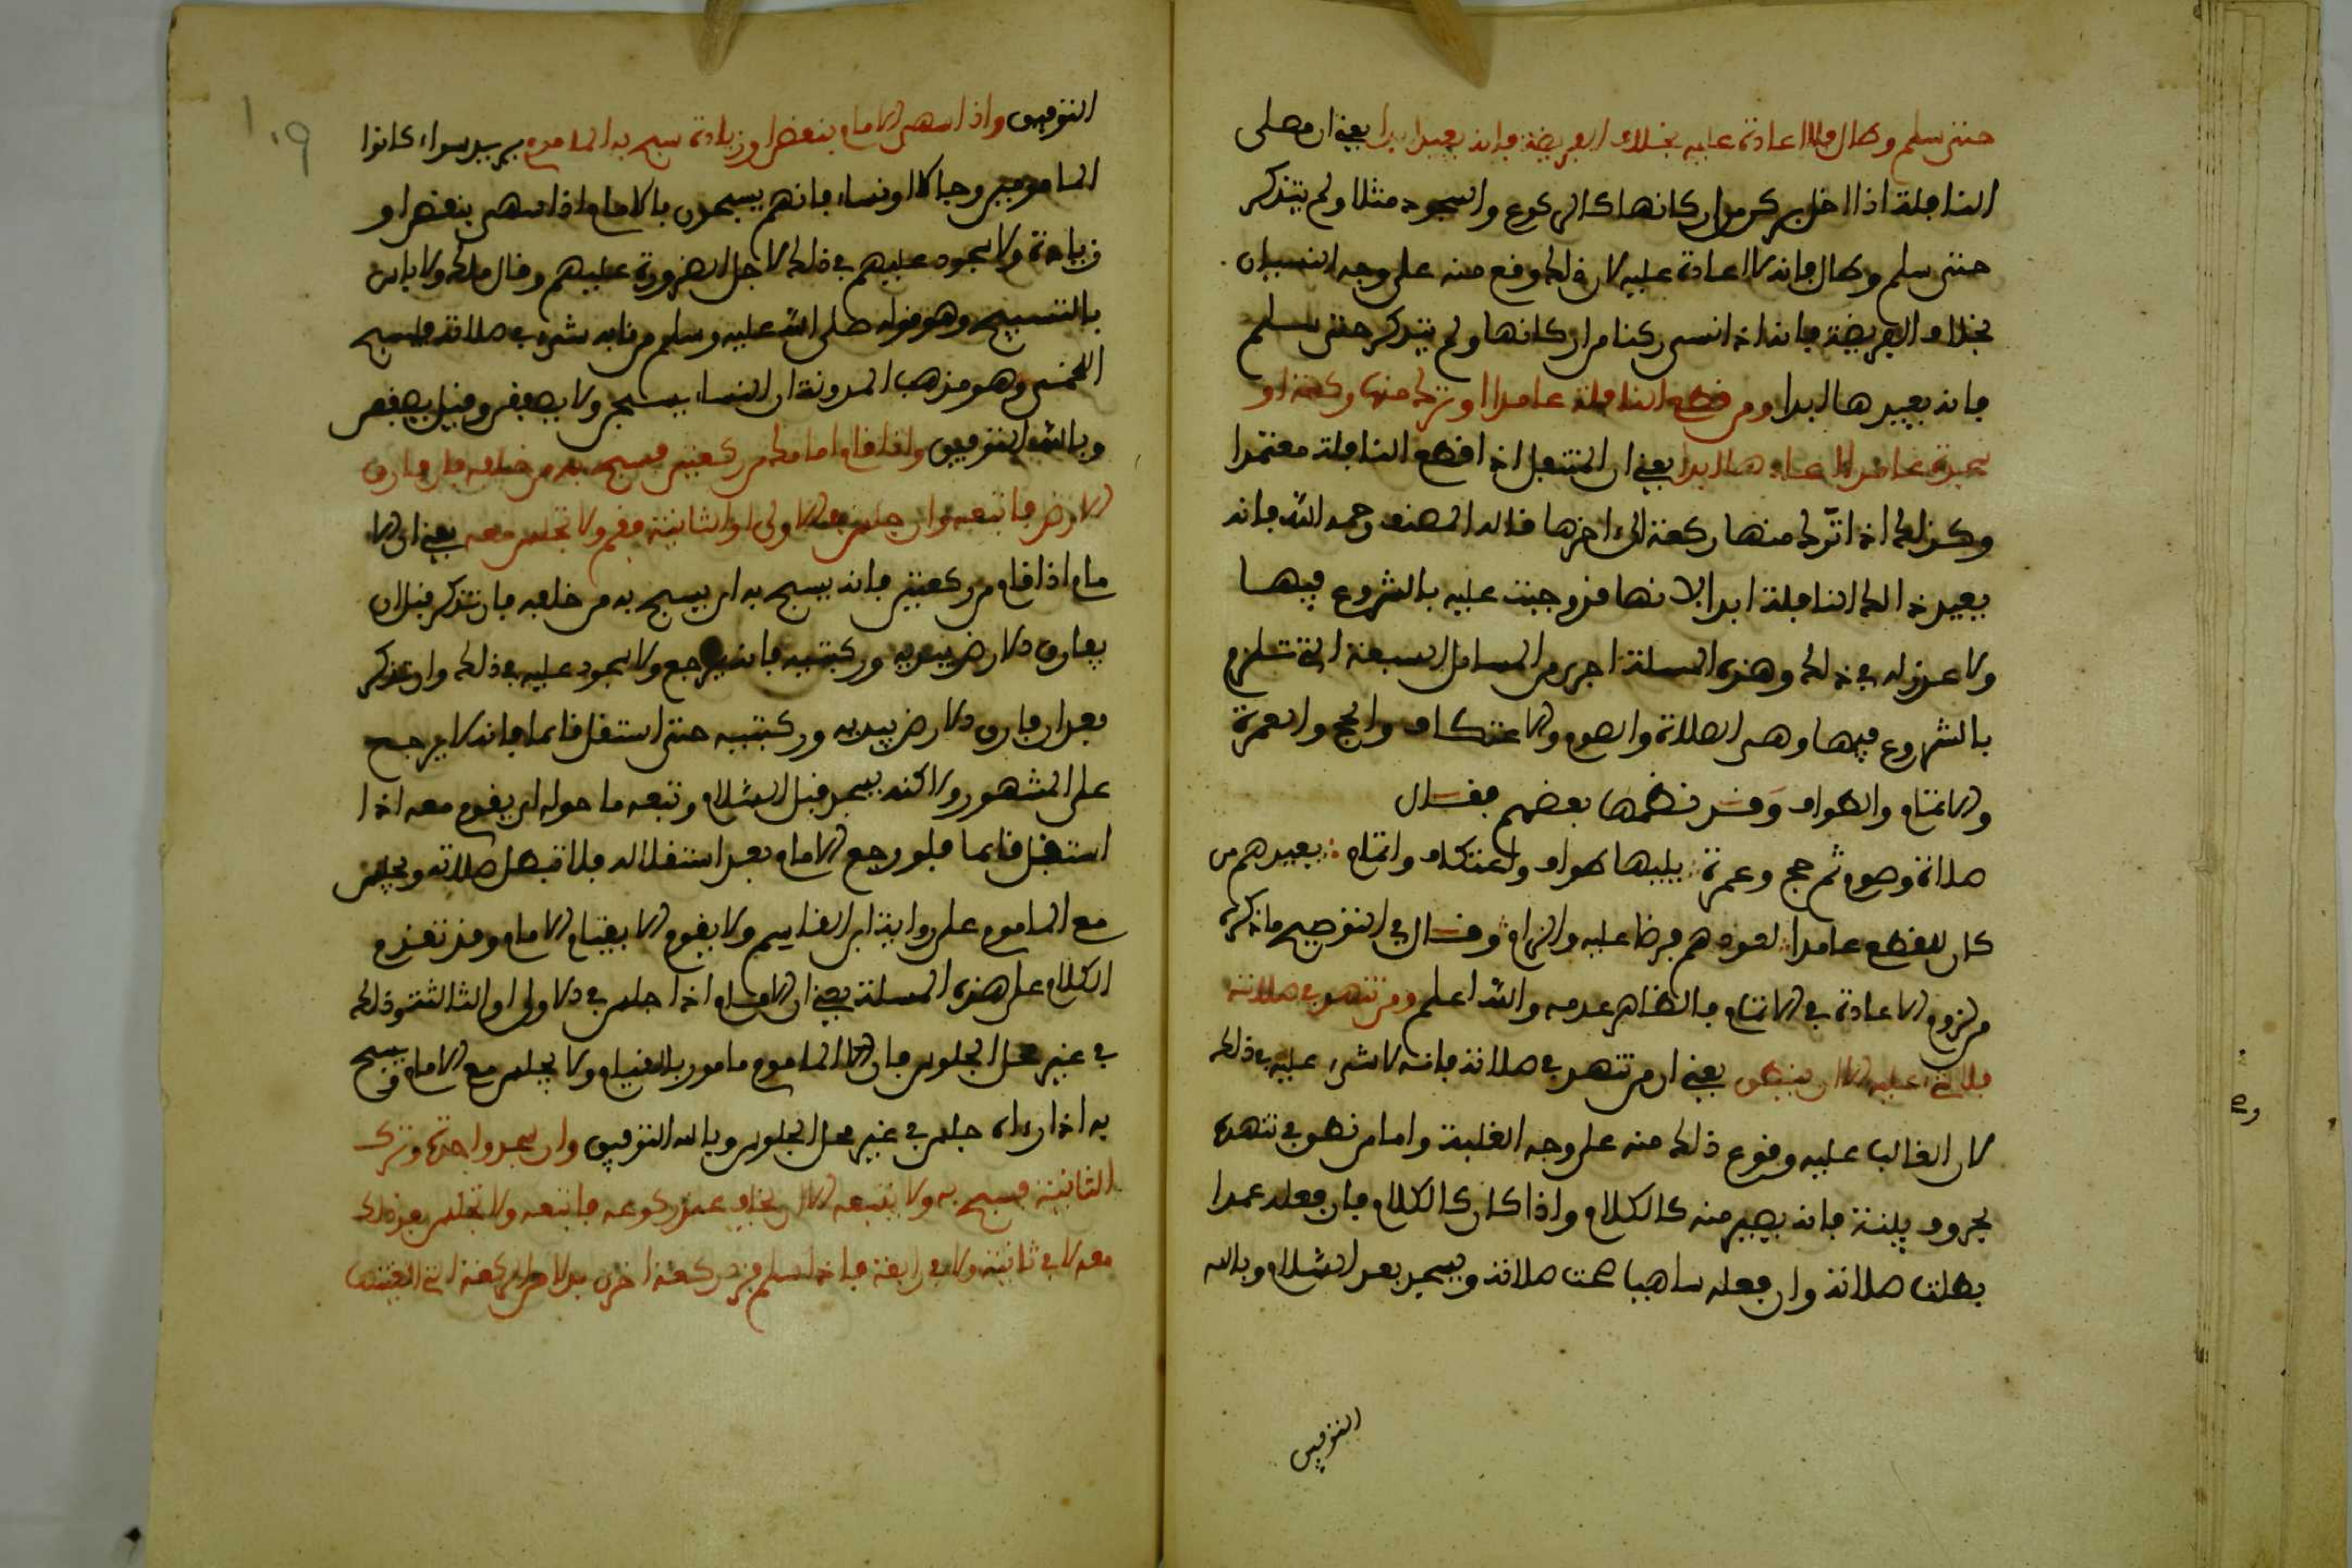 حتى سلم وطال فلا اعادة عليه بخلاف الفريضة فإنه يعيد ابدا يعني ان مصلى
النافلة اذا اخل بركن من اركانها كالركوع والسجود مثلا ولم يتذكر
حتى سلم وطال فإنه لا اعادة عليه لان ذلك وقع منه على وجه النسيان
بخلاف الفريضة فإنه اذا نسى ركنا من اركانها ولم يتذكر حتى سلم
فإنه يعيدها ابدا ومن قطع النافلة عامدا او ترك منها ركعة او
سجدة عامدا اعادها ابدا يعني ان المتنفل اذا قطع النافلة معتمدا
وكذلك اذا ترك منها ركعة الى اخرها قاله المصنف رحمه الله فإنه
يعيد ذالك النافلة ابدا لانها قد وجبت عليه بالشروع فيها
ولا عذر له في ذلك وهذه المسلة احرى من المسايل السبعة التي تلزم
بالشروع فيها وهى الصلاة والصوم والاعتكاف والحج والعمرة
والائتمام والطواف وقد نظمها بعضهم فقال
صلاة وصوم ثم حج وعمرة يليها طواف واعتكاف وائتمام يعيدهم من
كان للقطع عامدا لعودهم فرضا عليه والزام وقال في التوضيح ما ذكره
من لزوم الاعادة في الائتمام فالظاهر عدمه والله اعلم ومن تنهد في صلاته
فلا شيء عليه الا ان ينطق يعني ان من تنهد في صلاته فإنه لا شيء عليه في ذلك
لان الغالب عليه وقوع ذلك منه على وجه الغلبة واما من نطق في تنهده
بحروف بينة فإنه يصير منه كالكلام واذا كان كالكلام فإن فعله عمدا
بطلت صلاته وان فعله ساهيا صحت صلاته ويسجد بعد السلام وبالله
التوفيق
١٠٩
التوفيق واذا سهى الامام بنقص او زيادة سبح به الماموم يريد سواء كانوا
المامومين رجالا او نساء فإنهم يسبحون بالامام اذا سهى بنقص او
زيادة ولا سجود عليهم في ذلك لاجل الضرورة عليهم وقال ملك ولا باس
بالتسبيح وهو قوله صلى الله عليه وسلم من نابه شيء في صلاته فليسبح
اللخمى وهو مذهب المدونة ان النساء يسبحن ولا يصفقن وقيل يصفقن
وبالله التوفيق واذا قام امامك من ركعتين فسبح به من خلفه فإن فارق
الارض فاتبعه وان جلس في الاولى او الثانية فقم ولا تجلس معه يعني ان الا
مام اذا قام من ركعتين فإنه يسبح به اى يسبح به من خلفه فإن تذكر قبل ان
يفارق الارض بيديه وركبتيه فإنه يرجع ولا سجود عليه في ذلك وان تذكر
بعد ان فارق الارض بيديه وركبتيه حتى استقل قائما فإنه لا يرجع
على المشهور ولاكنه يسجد قبل السلام وتبعه ما حوله اى يقوم معه اذا
استقل قائما فلو رجع الامام بعد استقلاله فلا تبطل صلاته ويجلس
مع الماموم على رواية ابن القاسم ولا يقوم الا بقيام الامام وقد تقدم
الكلام على هذه المسلة يعني ان الامام اذا جلس في الاولى او الثالثة وذلك
في غير محل الجلوس فإن الماموم مامور بالقيام ولا يجلس مع الامام ويسبح
به اذا راه جلس في غير محل الجلوس وبالله التوفيق وان سجد واحدة وترك
الثانية فسبح به ولا تتبعه الا ان تخاف عقد ركوعه فاتبعه ولا تجلس بعد ذلك
معه لا في ثانية ولا في رابعة فإذا سلم فزد ركعة اخرى بدلا من الركعة التي الغيتها